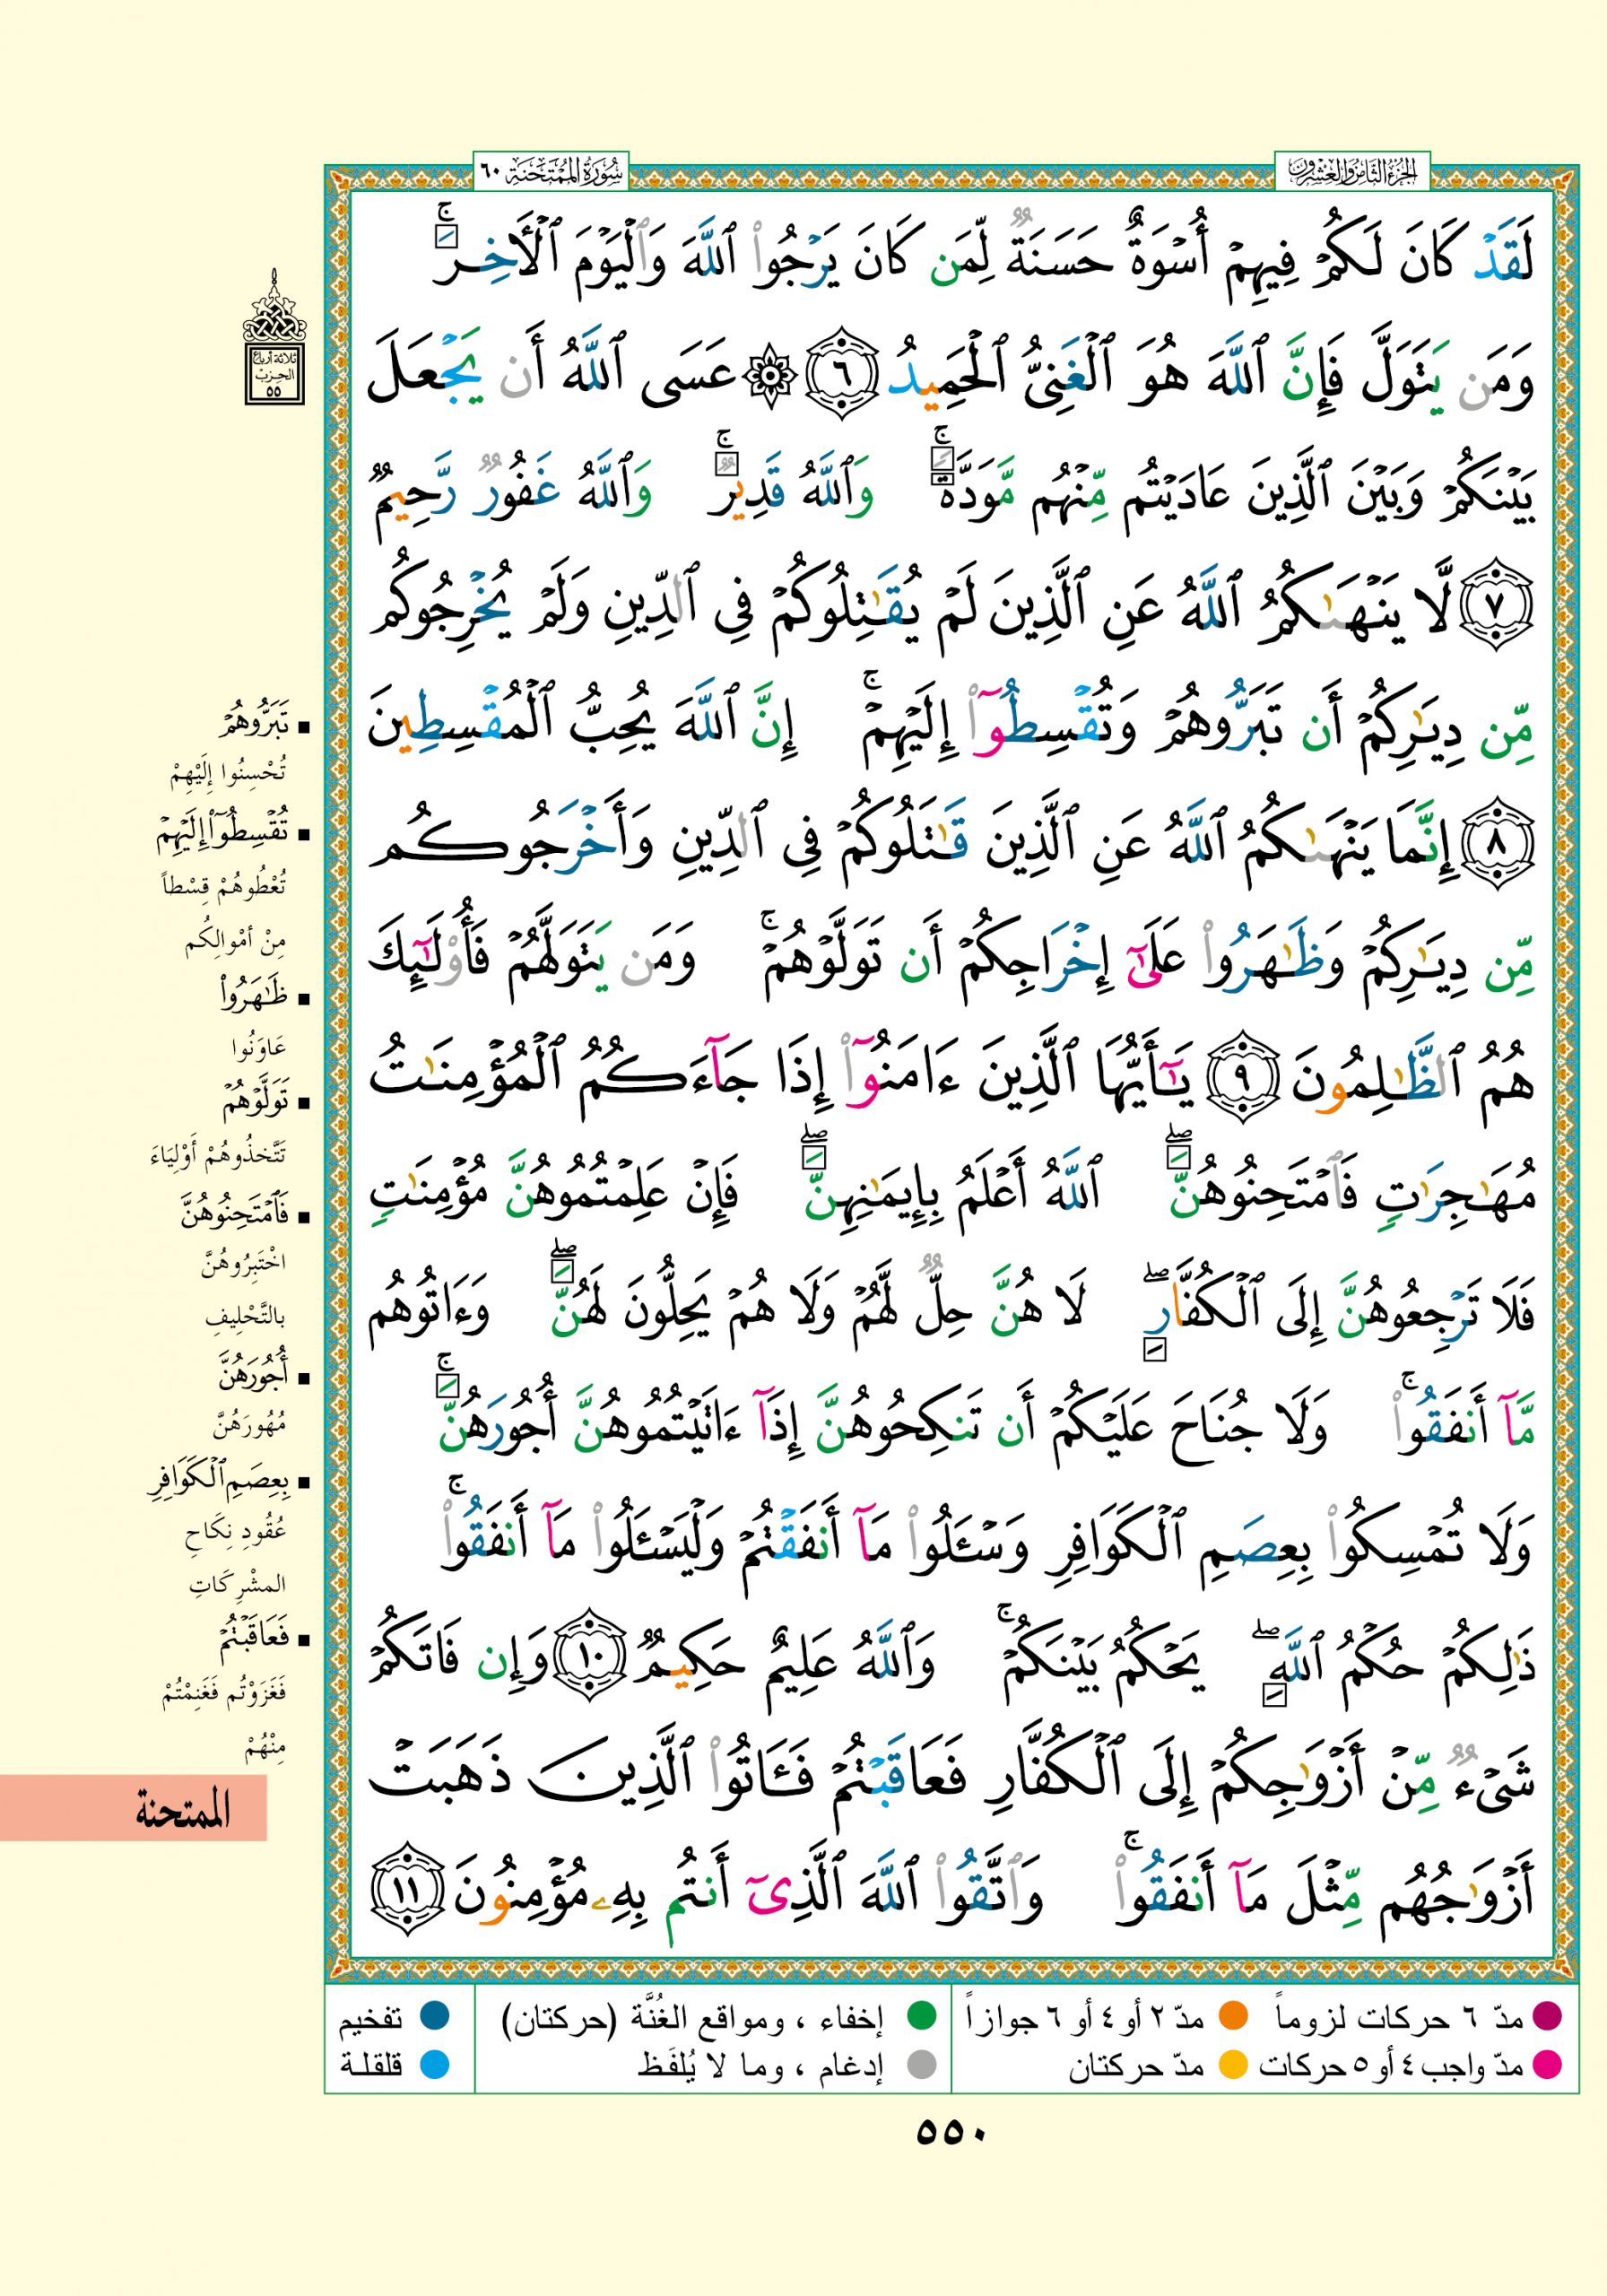 الجزء الثامن والعشرون
سُورَةُ المُمْتَحنَة ٦٠
لَقَدْ كَانَ لَكُمْ فِيهِمْ أُسْوَةٌ حَسَنَةٌ لِّمَن كَانَ يَرْجُوا۟ ٱللَّهَ وَٱلْيَوْمَ ٱلْـَٔاخِرَ ۚ
وَمَن يَتَوَلَّ فَإِنَّ ٱللَّهَ هُوَ ٱلْغَنِىُّ ٱلْحَمِيدُ ٦ ۞ عَسَى ٱللَّهُ أَن يَجْعَلَ
بَيْنَكُمْ وَبَيْنَ ٱلَّذِينَ عَادَيْتُم مِّنْهُم مَّوَدَّةً ۚ وَٱللَّهُ قَدِيرٌ ۚ وَٱللَّهُ غَفُورٌ رَّحِيمٌ
٧ لَّا يَنْهَىٰكُمُ ٱللَّهُ عَنِ ٱلَّذِينَ لَمْ يُقَـٰتِلُوكُمْ فِى ٱلدِّينِ وَلَمْ يُخْرِجُوكُم
مِّن دِيَـٰرِكُمْ أَن تَبَرُّوهُمْ وَتُقْسِطُوٓا۟ إِلَيْهِمْ ۚ إِنَّ ٱللَّهَ يُحِبُّ ٱلْمُقْسِطِينَ
٨ إِنَّمَا يَنْهَىٰكُمُ ٱللَّهُ عَنِ ٱلَّذِينَ قَـٰتَلُوكُمْ فِى ٱلدِّينِ وَأَخْرَجُوكُم
مِّن دِيَـٰرِكُمْ وَظَـٰهَرُوا۟ عَلَىٰٓ إِخْرَاجِكُمْ أَن تَوَلَّوْهُمْ ۚ وَمَن يَتَوَلَّهُمْ فَأُو۟لَـٰٓئِكَ
هُمُ ٱلظَّـٰلِمُونَ ٩ يَـٰٓأَيُّهَا ٱلَّذِينَ ءَامَنُوٓا۟ إِذَا جَآءَكُمُ ٱلْمُؤْمِنَـٰتُ
مُهَـٰجِرَٰتٍ فَٱمْتَحِنُوهُنَّ ۖ ٱللَّهُ أَعْلَمُ بِإِيمَـٰنِهِنَّ ۖ فَإِنْ عَلِمْتُمُوهُنَّ مُؤْمِنَـٰتٍ
فَلَا تَرْجِعُوهُنَّ إِلَى ٱلْكُفَّارِ ۖ لَا هُنَّ حِلٌّ لَّهُمْ وَلَا هُمْ يَحِلُّونَ لَهُنَّ ۖ وَءَاتُوهُم
مَّآ أَنفَقُوا۟ ۚ وَلَا جُنَاحَ عَلَيْكُمْ أَن تَنكِحُوهُنَّ إِذَآ ءَاتَيْتُمُوهُنَّ أُجُورَهُنَّ ۚ
وَلَا تُمْسِكُوا۟ بِعِصَمِ ٱلْكَوَافِرِ وَسْـَٔلُوا۟ مَآ أَنفَقْتُمْ وَلْيَسْـَٔلُوا۟ مَآ أَنفَقُوا۟ ۚ
ذَٰلِكُمْ حُكْمُ ٱللَّهِ ۖ يَحْكُمُ بَيْنَكُمْ ۚ وَٱللَّهُ عَلِيمٌ حَكِيمٌ ١٠ وَإِن فَاتَكُمْ
شَىْءٌ مِّنْ أَزْوَٰجِكُمْ إِلَى ٱلْكُفَّارِ فَعَاقَبْتُمْ فَـَٔاتُوا۟ ٱلَّذِينَ ذَهَبَتْ
أَزْوَٰجُهُم مِّثْلَ مَآ أَنفَقُوا۟ ۚ وَٱتَّقُوا۟ ٱللَّهَ ٱلَّذِىٓ أَنتُم بِهِۦ مُؤْمِنُونَ ١١
ثلاثة أرباع
الحزب
٥٥
▪ تَبَرُّوهُمْ
تُحْسِنُوا إِلَيْهِمْ
▪ تُقْسِطُوٓا۟ إِلَيْهِمْ
تُعْطُوهُمْ قِسْطاً
مِنْ أمْوالِكُم
▪ ظَـٰهَرُوا۟
عَاوَنُوا
▪ تَوَلَّوْهُمْ
تَتَّخذُوهُمْ أَوْلِيَاءَ
▪ فَٱمْتَحِنُوهُنَّ
اخْتَبِرُوهُنَّ
بالتَّحْلِيفِ
▪ أُجُورَهُنَّ
مُهُورَهُنَّ
▪ بِعِصَمِ ٱلْكَوَافِرِ
عُقُودِ نِكَاحِ
المشْرِكَاتِ
▪ فَعَاقَبْتُمْ
فَغَزَوْتُم فَغَنِمْتُمْ
مِنْهُمْ
الممتحنة
مدّ ٦ حركات لزوماً مدّ ٢ أو ٤ أو ٦ جوازاً إخفاء ، ومواقع الغُنَّة (حركتان) تفخيم
مدّ واجب ٤ أو ٥ حركات مدّ حركتان إدغام ، وما لا يُلفَظ قلقلة
٥٥٠